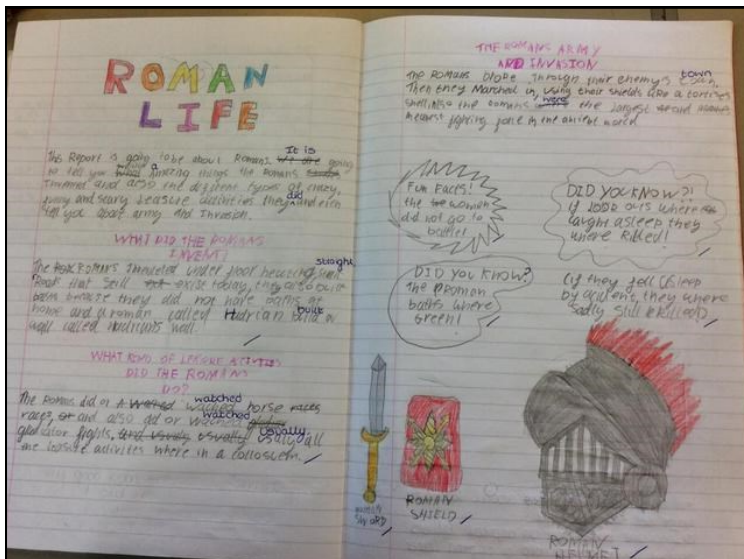 ROMAN
LIFE
This Report is going to be about Romans. It is going
to tell you a amazing things the Romans
Invented and also the different types of crazy,
funny and scary leasure activities they did and even
tell you about army and Invasion.
WHAT DID THE ROMANS
INVENT?
The Romans Invented under floor heating, straight
Roads that still exist today, they also built
baths because they did not have baths at
home and a roman called Hadrian built a
wall called Hadrians wall.
WHAT KIND OF LEISURE ATIVITIES
DID THE ROMANS
DO?
The Romans did or watched horse
races, and also did or watched
gladiator fights, usually all
the leasure activites where in a collosuem.
THE ROMANS ARMY
AND INVASION
The Romans broke through their enemys town.
Then they Marched in, using their shields like a tortise
shell. Also the Romans were the largest
meanest fighting force in the ancient world.
FUN FACTS!
the women
did not go to
battle!
DID YOU KNOW?!
if soldiours where
caught asleep they
where killed!
DID YOU KNOW?
The Roman
baths where
Green!
(if they fell asleep
by accident, they where
sadly still killed)
ROMAN
SWORD
ROMAN
SHIELD
ROMAN
HELMET